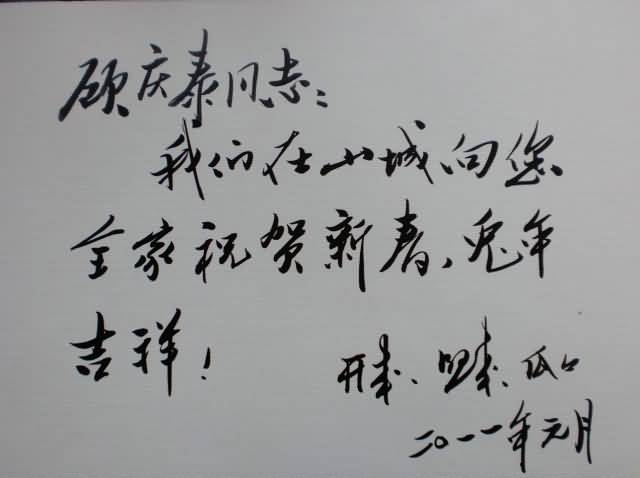 顾庆泰同志：
我们在山城向您
全家祝贺新春、兔年
吉祥！
二〇一一年元月